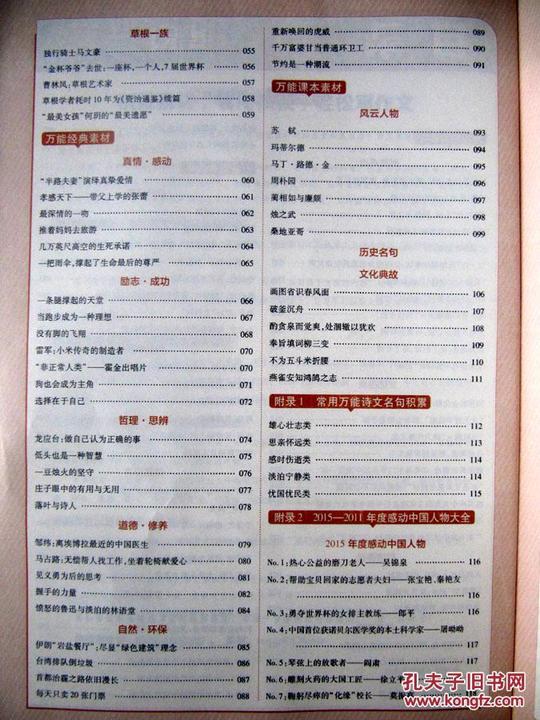 草根一族
独行骑士马文豪 055
“金杯爷爷”去世:一座杯,一个人,7届世界杯 056
曹林风:草根艺术家 057
草根学者耗时10年为《资治通鉴》续篇 058
“最美女孩”何玥的“最美遗愿” 059
万能经典素材
真情·感动
“半路夫妻”演绎真挚爱情 060
孝感天下——带父上学的张蕾 061
最深情的一吻 062
推着妈妈去旅游 063
几万英尺高空的生死承诺 064
一把雨伞,撑起了生命最后的尊严 065
励志·成功
一条腿撑起的天堂 066
当跑步成为一种理想 067
没有脚的飞翔 068
雷军:小米传奇的制造者 070
“非正常人类”——霍金出唱片 070
狗也会成为主角 071
选择在于自己 072
哲理·思辨
龙应台:做自己认为正确的事 074
低头也是一种智慧 075
一豆烛火的坚守 076
庄子眼中的有用与无用 077
落叶与诗人 078
道德·修养
邹纬:离埃博拉最近的中国医生 079
马占路:无偿帮人找工作,坐着轮椅献爱心 080
见义勇为后的思考 081
握手的力量 082
愤怒的鲁迅与淡泊的林语堂 084
自然·环保
伊朗“岩盐餐厅”:尽显“绿色建筑”理念 085
台湾排队倒垃圾 086
首都治霾之路依旧漫长 087
每天只卖20张门票 088
重新唤回的虎威 089
千万富婆甘当普通环卫工 090
节约是一种潮流 091
万能课本素材
风云人物
苏轼 093
玛蒂尔德 094
马丁·路德·金 095
周朴园 096
蔺相如与廉颇 097
烛之武 098
桑地亚哥 099
历史名句
文化典故
画图省识春风面 106
破釜沉舟 107
酌贪泉而觉爽,处涸辙以犹欢 108
奉旨填词柳三变 109
不为五斗米折腰 110
燕雀安知鸿鹄之志 111
附录1 常用万能诗文名句积累
雄心壮志类 112
思亲怀远类 113
感时伤逝类 114
淡泊宁静类 114
忧国忧民类 115
附录2 2015—2011年度感动中国人物大全
2015年度感动中国人物
No.1:热心公益的磨刀老人——吴锦泉 116
No.2:帮助宝贝回家的志愿者夫妇——张宝艳、秦艳友
116
No.3:勇夺世界杯的女排主教练——郎平 116
No.4:中国首位获诺贝尔医学奖的本土科学家——屠呦呦
117
No.5:琴弦上的放歌者——阎肃 117
No.6:雕刻火药的大国工匠——徐立平
No.7:鞠躬尽瘁的“化缘”校长——莫振高 118
孔夫子旧书网